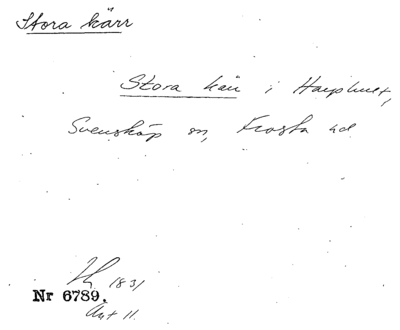 Stora kärr
Stora kärr i Harphult,
Svensköp sn, Frosta hd
1831
Nr 6789.
Akt 11.